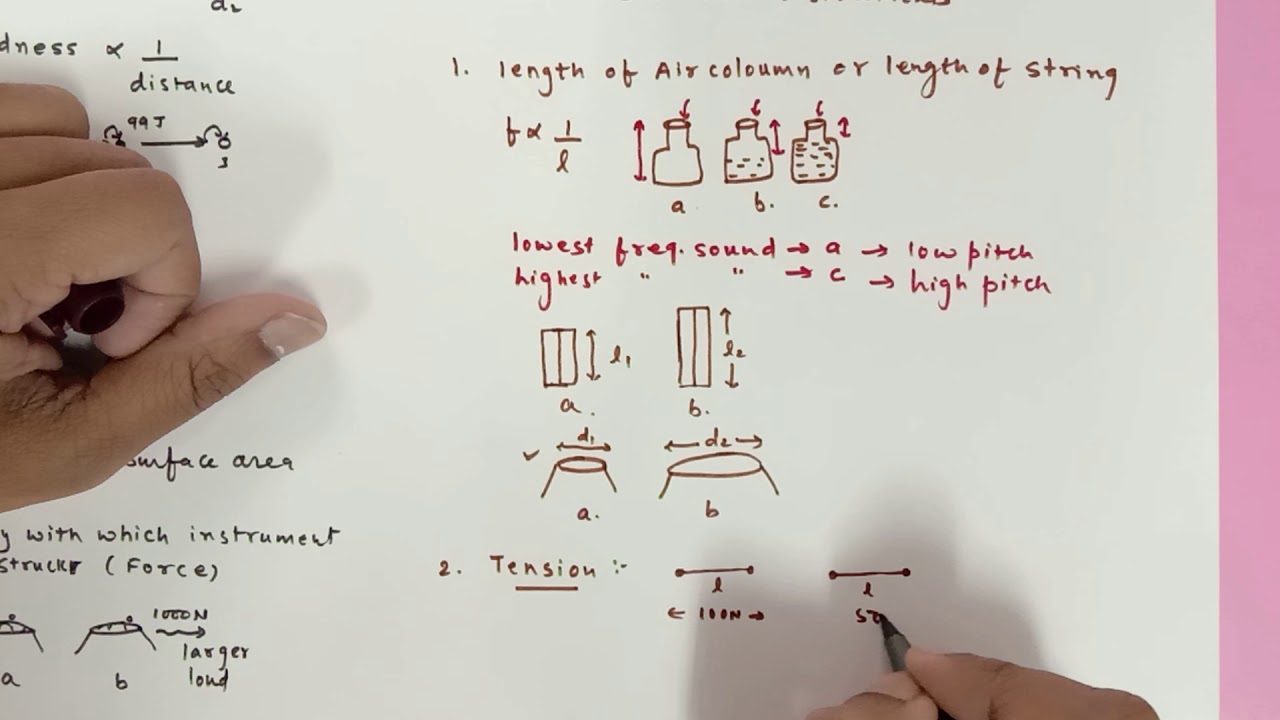 d₂
dness ∝ 1
distance
99J
surface area
y with which instrument
struck (Force)
1000N
larger
loud
a b
1. length of Air coloumn or length of string
f ∝ 1
l
a b. c.
lowest freq. sound → a → low pitch
highest " " → c → high pitch
l₁ l₂
a. b.
✓ d₁ d₂
a. b
2. Tension :-
l l
← 100N → 50